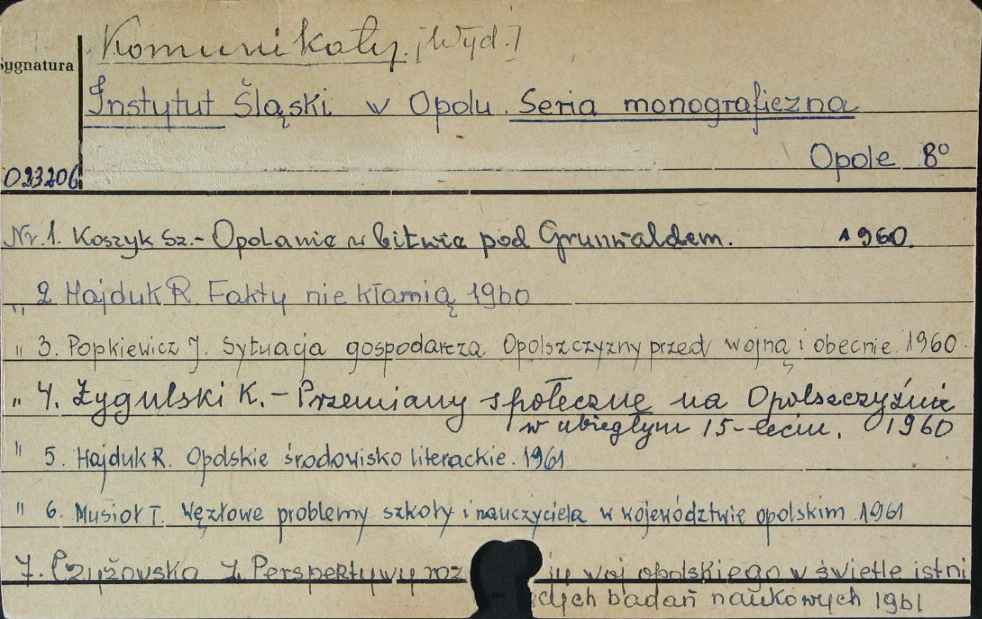 Komunikaty. [Wyd.]
Sygnatura
Instytut Śląski w Opolu. Seria monograficzna
Opole 8°
023206
Nr. 1. Koszyk Sz.- Opolanie w bitwie pod Grunwaldem. 1960.
" 2 Hajduk R. Fakty nie kłamią 1960
" 3. Popkiewicz J. Sytuacja gospodarcza Opolszczyzny przed wojną i obecnie. 1960.
" 4. Żygulski K. - Przemiany społeczne na Opolszczyźnie
w ubiegłym 15-leciu. 1960
" 5. Hajduk R. Opolskie środowisko literackie. 1961
" 6. Musioł T. Węzłowe problemy szkoły i nauczyciela w województwie opolskim. 1961
7. Czyżowska Z. Perspektywy roz ju woj opolskiego w świetle istni
cych badań naukowych 1961